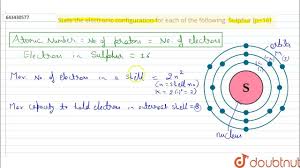 643430577
State the electronic configuration for each of the following: Sulphur (p=16)
Atomic Number = No of protons = No. of electrons
Electrons in Sulphur = 16
Max. No of electron in a shell = 2n²
(n = shell no)
K = 2(1)² = 2
Max capacity to hold electron in outermost shell = 8
S
nucleus
doubtnut